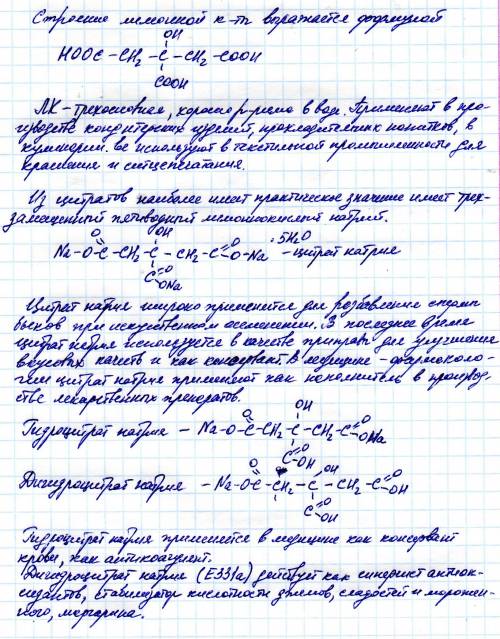 Строение лимонной к-ты выражается формулой
OH
HOOC – CH2 – C – CH2 – COOH
COOH
ЛК – трехосновная, хорошо р-рима в воде. Применяют в про-
изводстве кондитерских изделий, прохладительных напитков, в
кулинарии. Ее используют в текстильной промышленности для
крашения и ситцепечатания.
Из цитратов наиболее имеет практическое значение имеет трех-
замещенный пятиводный лимоннокислый натрий.
O OH · 5H2O
Na – O – C – CH2 – C – CH2 – C = O – O – Na – цитрат натрия
C = O
ONa
Цитрат натрия широко применяется для разбавления спермы
быков при искуственном осеменении. В последнее время
цитрат натрия используется в качестве приправы для улучшения
вкусовых качеств и как консервант. В медицине – фармаколо-
гии цитрат натрия применяют как наполнитель в производ-
стве лекарственных препаратов.
OH
Гидроцитрат натрия – Na – O – C = O – CH2 – C – CH2 – C = O ONa
C = O OH
O OH
Дигидроцитрат натрия – Na – O – C – CH2 – C – CH2 – C = O OH
C = O OH
Гидроцитрат натрия применяется в медицине как консервант
крови, как антикоагулянт.
Дигидроцитрат натрия (E331a) действует как синергист антиок-
сидантов, стабилизатор кислотности джемов, сладостей и морожен-
ного, маргарина.